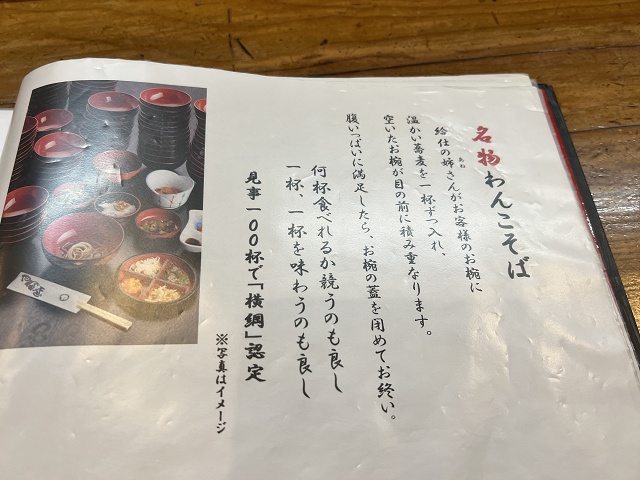 名物わんこそば
給仕の姉さんがお客様のお椀に
あね
温かい蕎麦を一杯ずつ入れ、
空いたお椀が目の前に積み重なります。
腹いっぱいに満足したら、お椀の蓋を閉めてお終い。
何杯食べれるか競うのも良し
一杯、一杯を味わうのも良し
見事一〇〇杯で「横綱」認定
※写真はイメージ